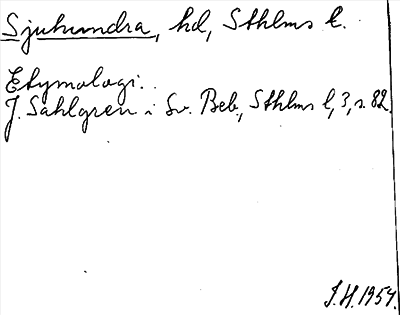 Sjuhundra, hd, Sthlms l.
Etymologi..
J. Sahlgren i Sv. Beb., Sthlms l, 3, s. 82.
J.H. 1954.